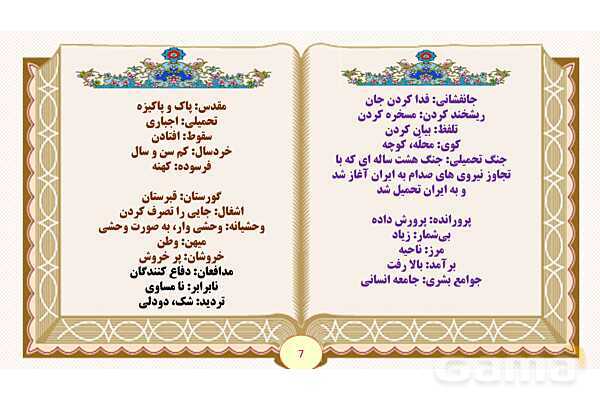 جانفشانی: فدا کردن جان
ریشخند کردن: مسخره کردن
تلفظ: بیان کردن
کوی: محله، کوچه
جنگ تحمیلی: جنگ هشت ساله ای که با
تجاوز نیروی های صدام به ایران آغاز شد
و به ایران تحمیل شد
پرورانده: پرورش داده
بی‌شمار: زیاد
مرز: ناحیه
برآمد: بالا رفت
جوامع بشری: جامعه انسانی
مقدس: پاک و پاکیزه
تحمیلی: اجباری
سقوط: افتادن
خردسال: کم سن و سال
فرسوده: کهنه
گورستان: قبرستان
اشغال: جایی را تصرف کردن
وحشیانه: وحشی وار، به صورت وحشی
میهن: وطن
خروشان: پر خروش
مدافعان: دفاع کنندگان
نابرابر: نا مساوی
تردید: شک، دودلی
7
Gama